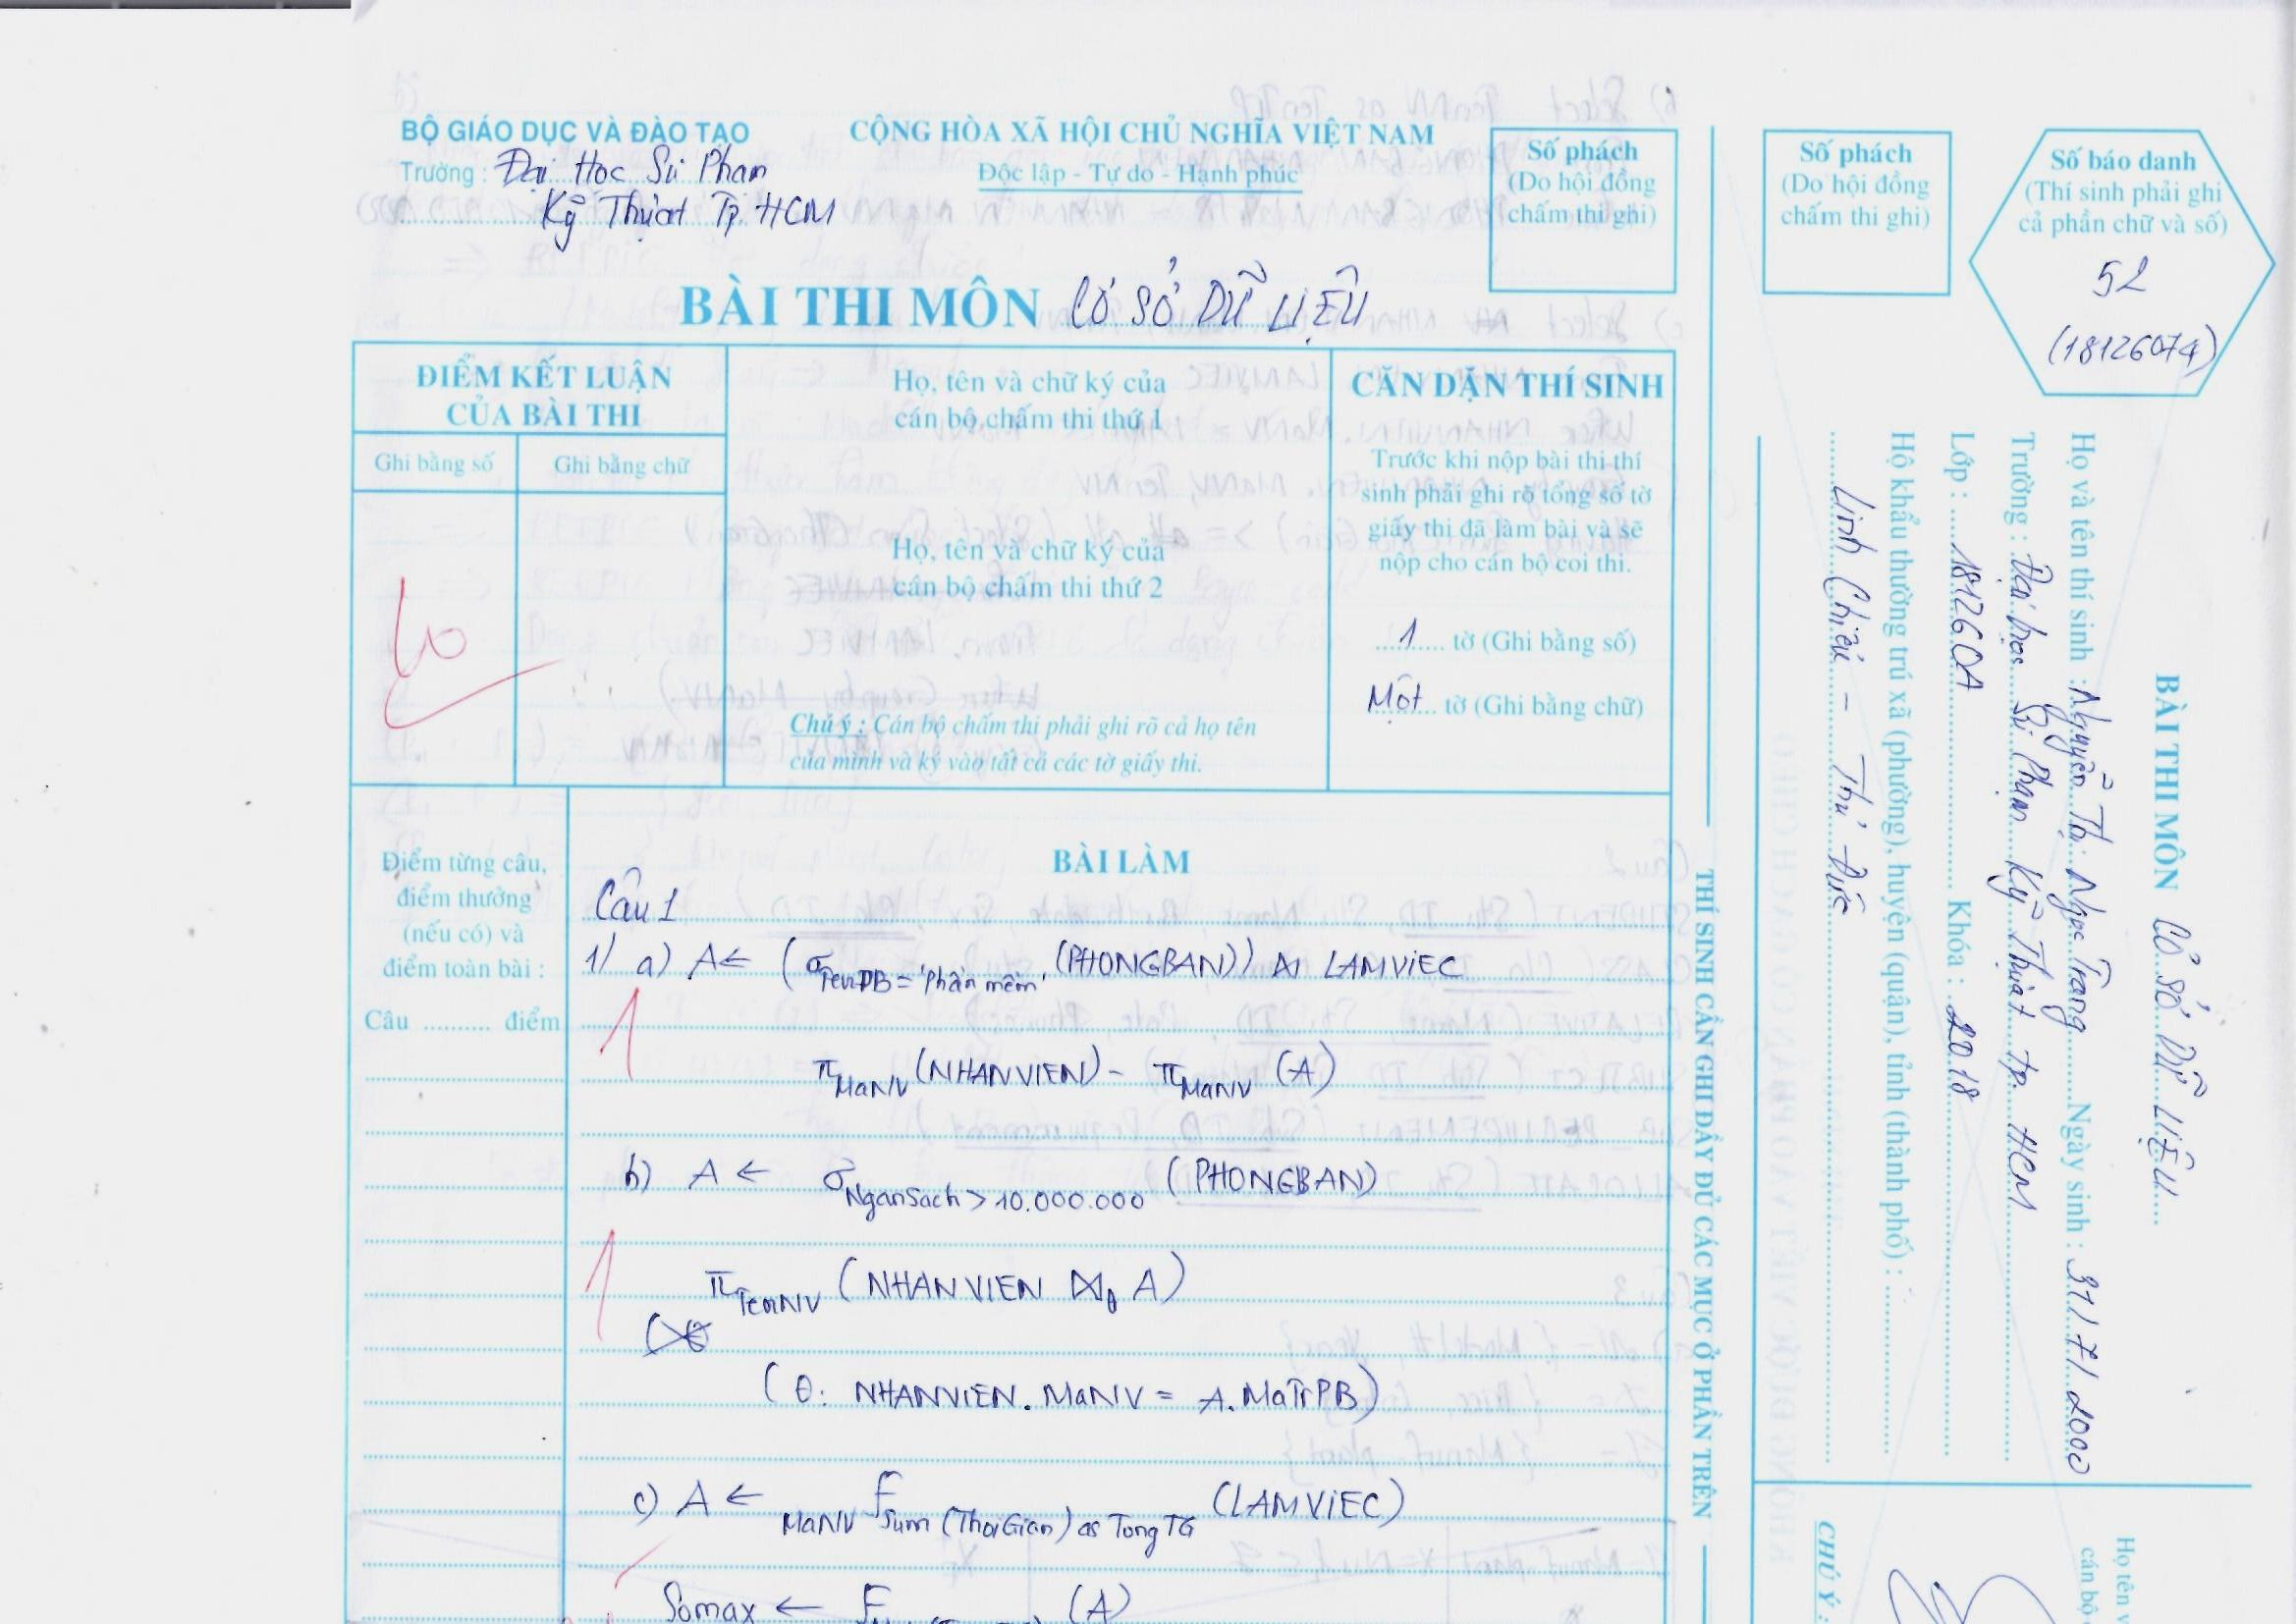 BỘ GIÁO DỤC VÀ ĐÀO TẠO
Trường : Đại Học Sư Phạm
Kỹ Thuật Tp HCM
CỘNG HÒA XÃ HỘI CHỦ NGHĨA VIỆT NAM
Độc lập - Tự do - Hạnh phúc
Số phách
(Do hội đồng
chấm thi ghi)
BÀI THI MÔN CƠ SỞ DỮ LIỆU
ĐIỂM KẾT LUẬN
CỦA BÀI THI
Ghi bằng số
Ghi bằng chữ
10
Họ, tên và chữ ký của
cán bộ chấm thi thứ 1
Họ, tên và chữ ký của
cán bộ chấm thi thứ 2
Chú ý : Cán bộ chấm thi phải ghi rõ cả họ tên
của mình và ký vào tất cả các tờ giấy thi.
CĂN DẶN THÍ SINH
Trước khi nộp bài thi thí
sinh phải ghi rõ tổng số tờ
giấy thi đã làm bài và sẽ
nộp cho cán bộ coi thi.
1 tờ (Ghi bằng số)
Một tờ (Ghi bằng chữ)
Điểm từng câu,
điểm thưởng
(nếu có) và
điểm toàn bài :
Câu .......... điểm
BÀI LÀM
Câu 1
1/ a) A ← (σ TenPB = 'Phần mềm' (PHONGBAN)) ⋈ LAMVIEC
1
π MaNV (NHANVIEN) - π MaNV (A)
b) A ← σ NganSach > 10.000.000 (PHONGBAN)
1
π TenNV (NHANVIEN ⋈θ A)
(θ: NHANVIEN.MaNV = A.MaTrPB)
c) A ← MaNV F Sum (ThoiGian) as TongTG (LAMVIEC)
Somax ← F (A)
THÍ SINH CẦN GHI ĐẦY ĐỦ CÁC MỤC Ở PHẦN TRÊN
Số phách
(Do hội đồng
chấm thi ghi)
Số báo danh
(Thí sinh phải ghi
cả phần chữ và số)
52
(18126074)
BÀI THI MÔN CƠ SỞ DỮ LIỆU
Họ và tên thí sinh : Nguyễn Thị Ngọc Trang Ngày sinh : 31/7/2000
Trường : Đại học Sư Phạm Kỹ Thuật tp. HCM
Lớp : 18126OA Khóa : 2018
Hộ khẩu thường trú xã (phường), huyện (quận), tỉnh (thành phố) :
Linh Chiểu - Thủ Đức
Họ tên v
cán bộ
CHÚ Ý :